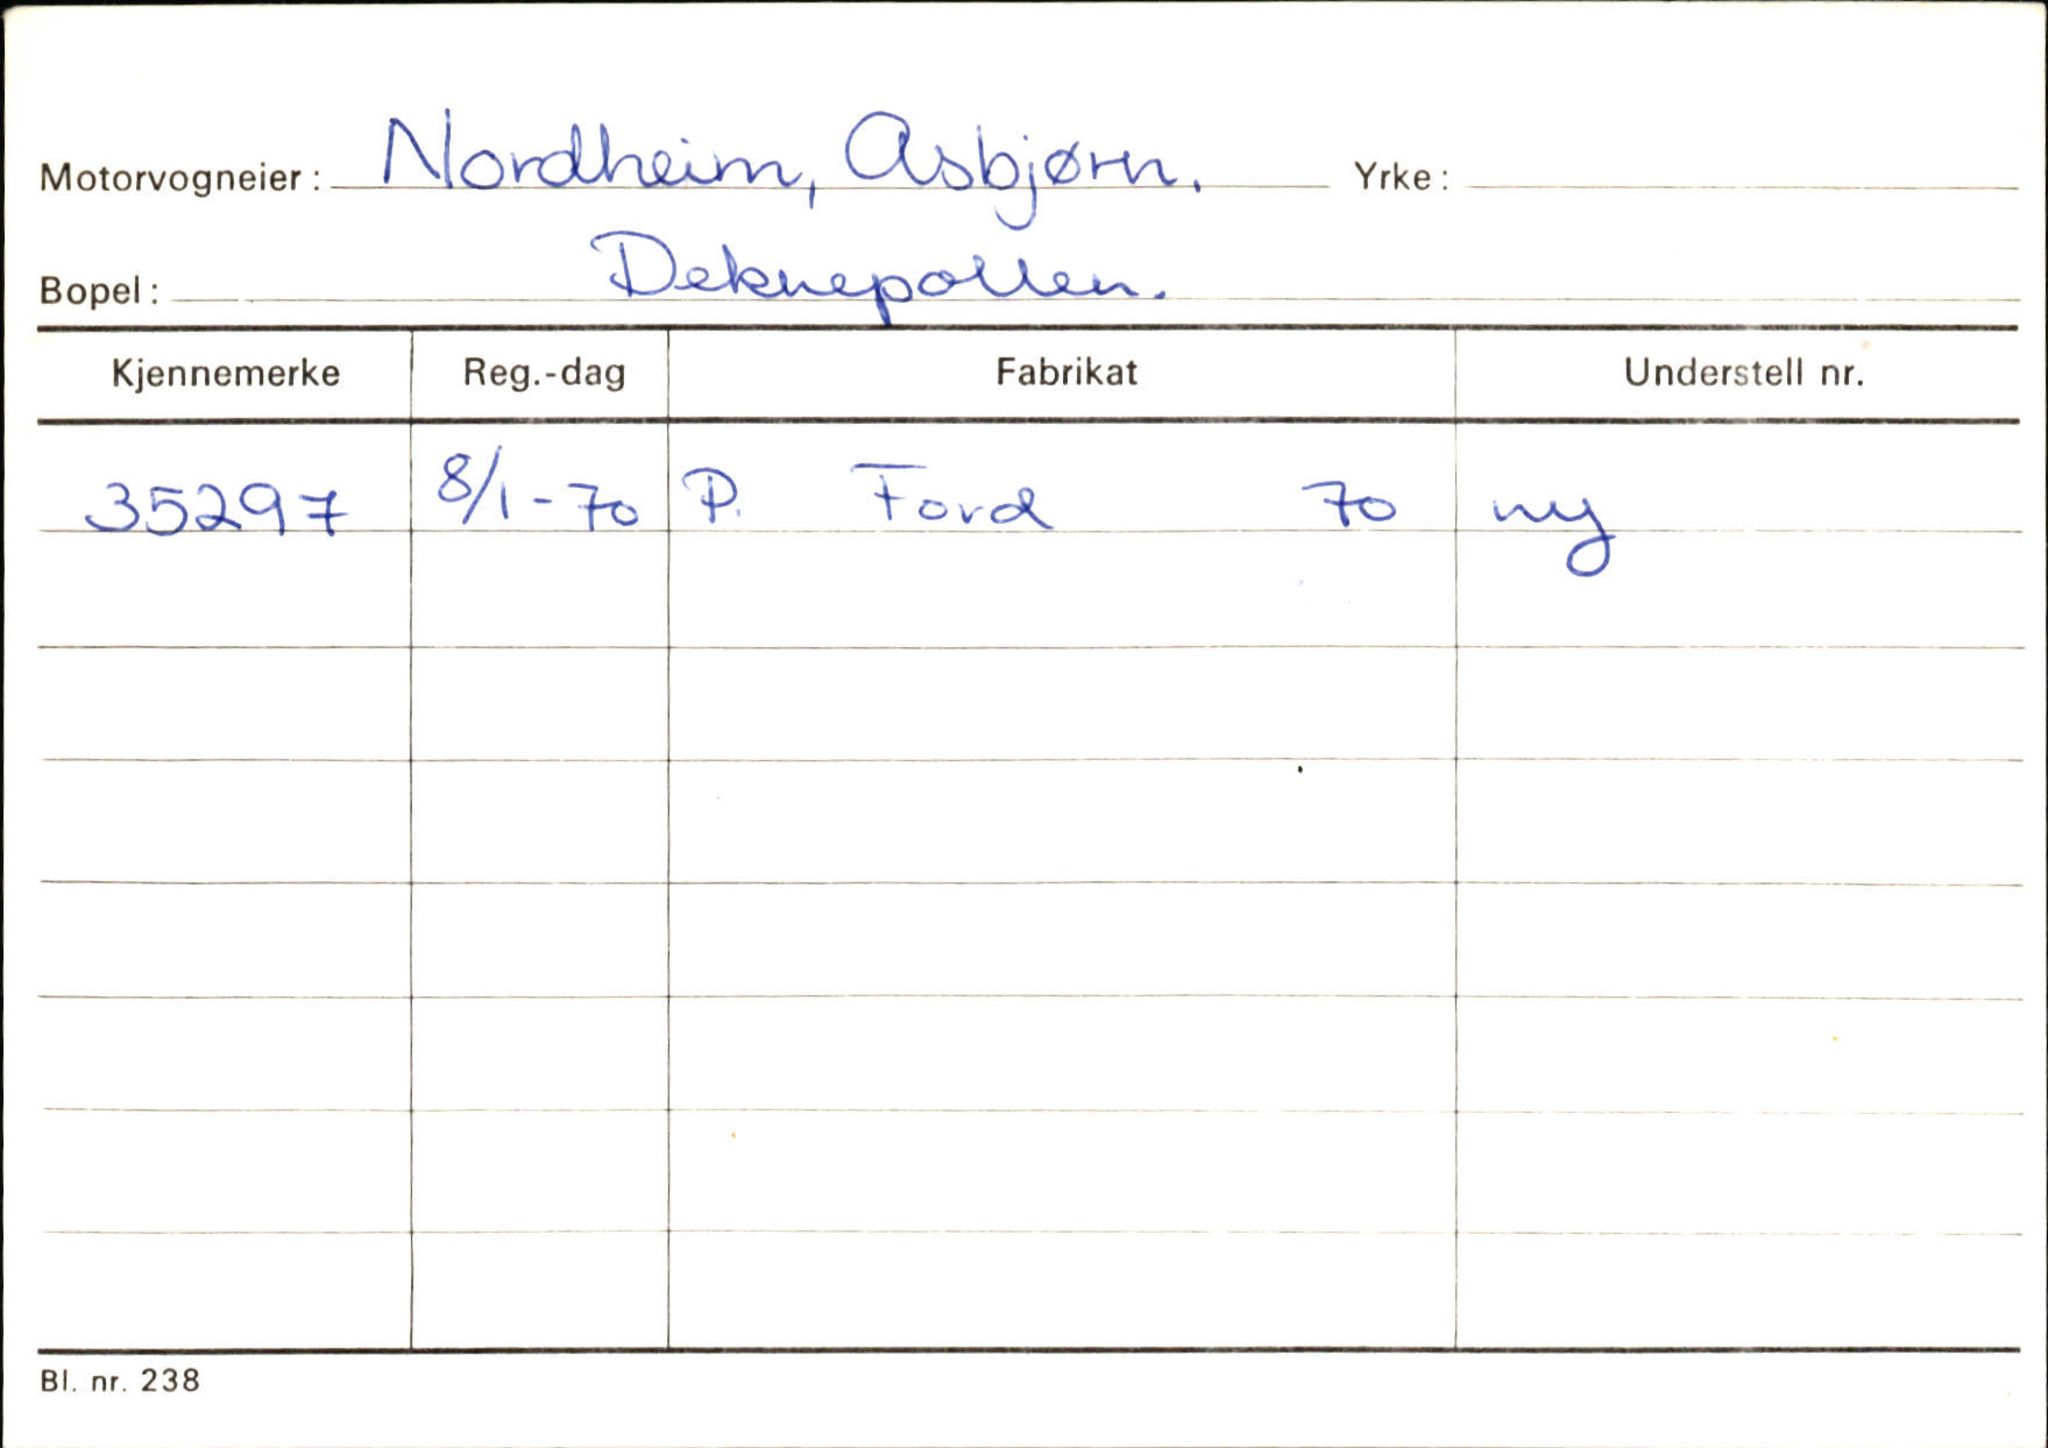 Motorvogneier: Nordheim, Asbjørn. Yrke:
Bopel: Deknepollen.
Kjennemerke Reg.-dag Fabrikat Understell nr.
35297 8/1-70 P. Ford 70 ny
Bl. nr. 238